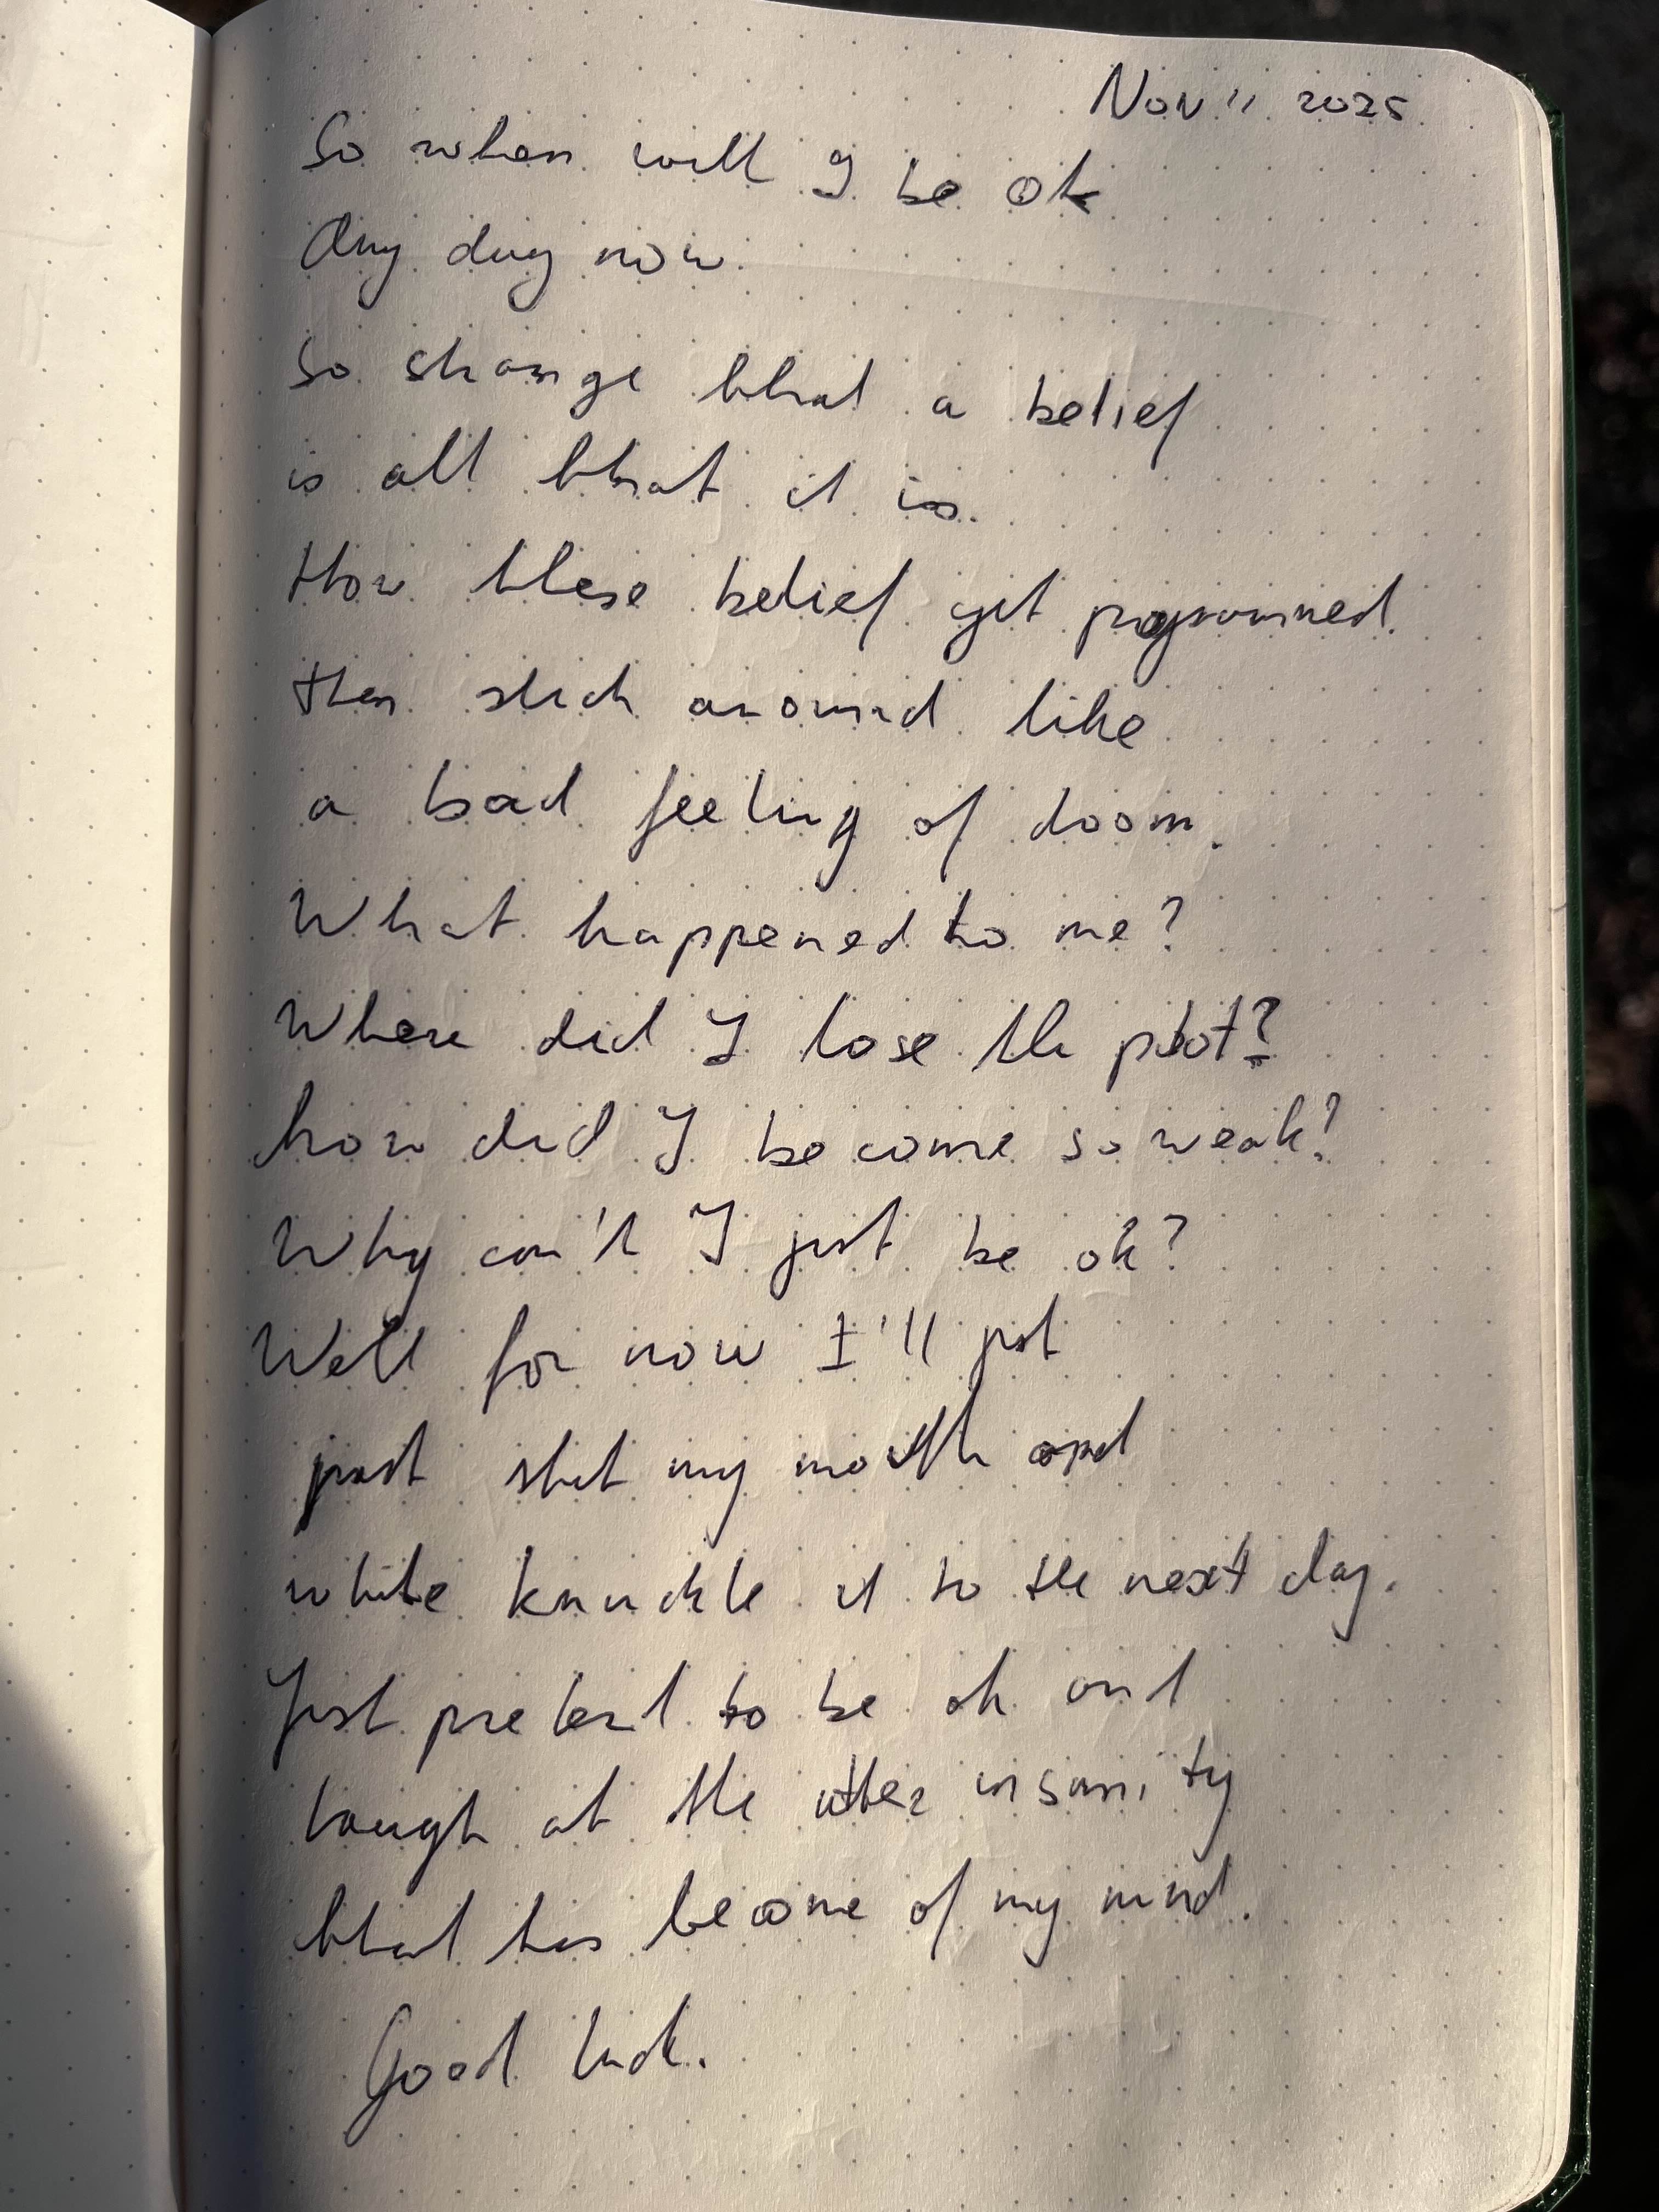 Nov 11 2025
So when will I be ok
Any day now.
So strange that a belief
is all that it is.
How these belief get programmed.
then stick around like
a bad feeling of doom.
What happened to me?
Where did I lose the plot?
how did I become so weak?
Why can't I just be ok?
Well for now I'll just
just shut my mouth and
white knuckle it to the next day.
Just pretend to be ok and
laugh at the utter insanity
that has become of my mind.
Good luck.